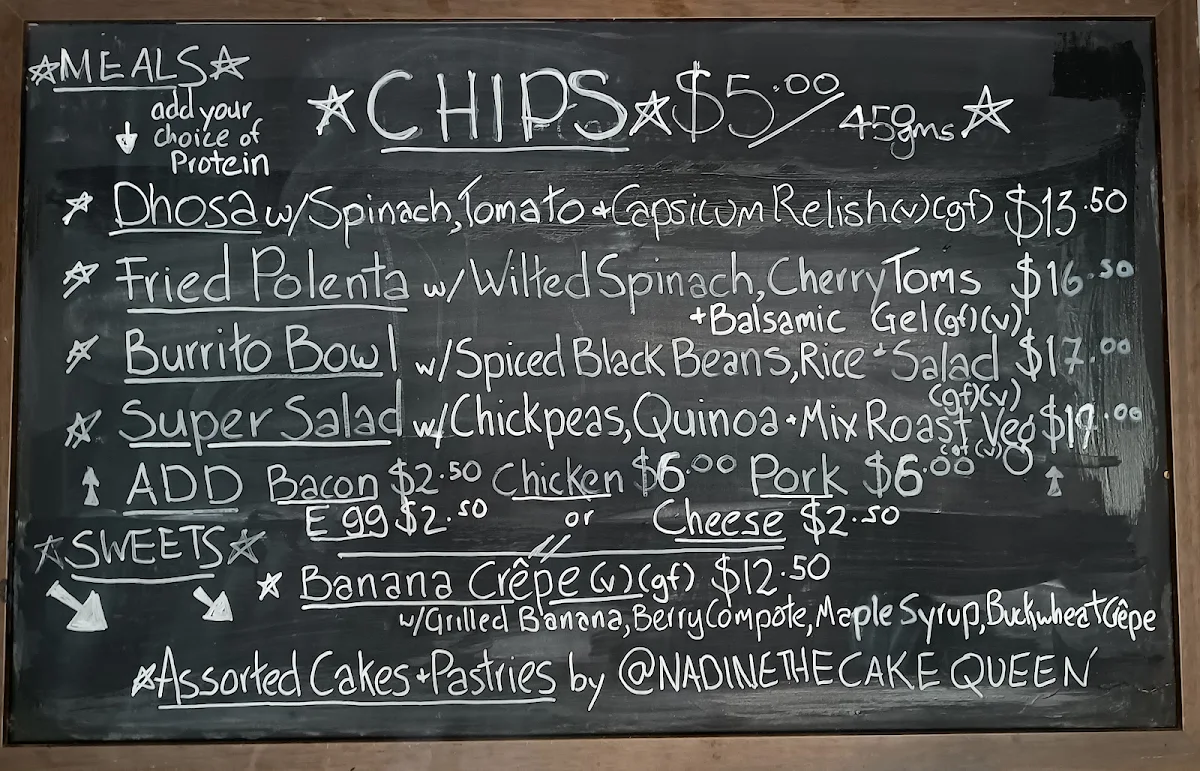 MEALS
add your
choice of
Protein
CHIPS $5.00/45gms
Dhosa w/Spinach, Tomato + Capsicum Relish (v)(gf) $13.50
Fried Polenta w/Wilted Spinach, Cherry Toms $16.50
+Balsamic Gel (gf)(v)
Burrito Bowl w/Spiced Black Beans, Rice + Salad $17.00
(gf)(v)
Super Salad w/Chickpeas, Quinoa + Mix Roast Veg $19.00
(gf)(v)
ADD Bacon $2.50 Chicken $6.00 Pork $6.00
Egg $2.50 or Cheese $2.50
SWEETS
Banana Crêpe (v)(gf) $12.50
w/Grilled Banana, Berry Compote, Maple Syrup, Buckwheat Crêpe
Assorted Cakes + Pastries by @NADINETHECAKEQUEEN